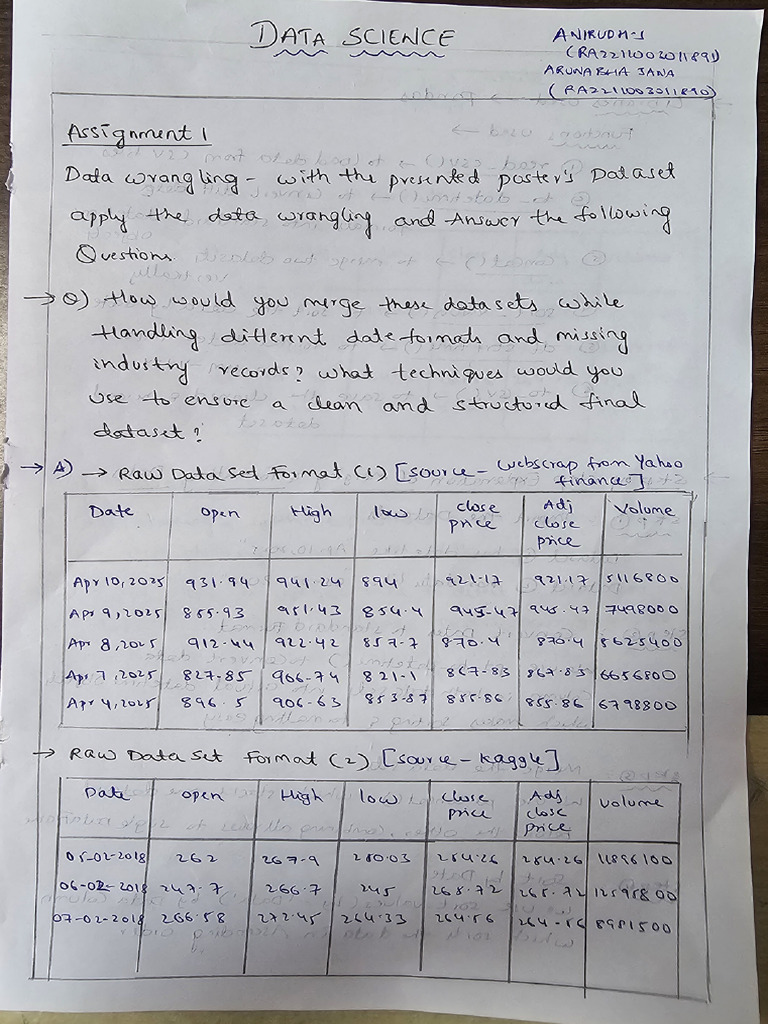 DATA SCIENCE
ANIRUDH-S
(RA2211003011891)
ARUNABHA JANA
(RA2211003011890)
Assignment 1
Data wrangling - with the presented poster's Dataset
apply the data wrangling and Answer the following
Questions.
→ Q) How would you merge these datasets while
Handling different date formats and missing
industry records? what techniques would you
use to ensure a clean and structured final
dataset?
→ A) → Raw Data Set Format (1) [source - webscrap from Yahoo
finance]
Date Open High low close price Adj close price Volume
Apr 10, 2025 931.94 941.24 894 921.17 921.17 5116800
Apr 9, 2025 855.93 951.43 854.4 945.47 945.47 7498000
Apr 8, 2025 912.44 922.42 857.7 870.4 870.4 8625400
Apr 7, 2025 827.85 906.74 821.1 867.83 867.83 6656800
Apr 4, 2025 896.5 906.63 853.87 855.86 855.86 6798800
→ Raw Data Set Format (2) [source - kaggle]
Date open High low close price Adj close price volume
05-02-2018 262 267.9 250.03 254.26 254.26 11896100
06-02-2018 247.7 266.7 245 265.72 265.72 12595800
07-02-2018 266.58 272.45 264.33 264.56 264.56 8981500